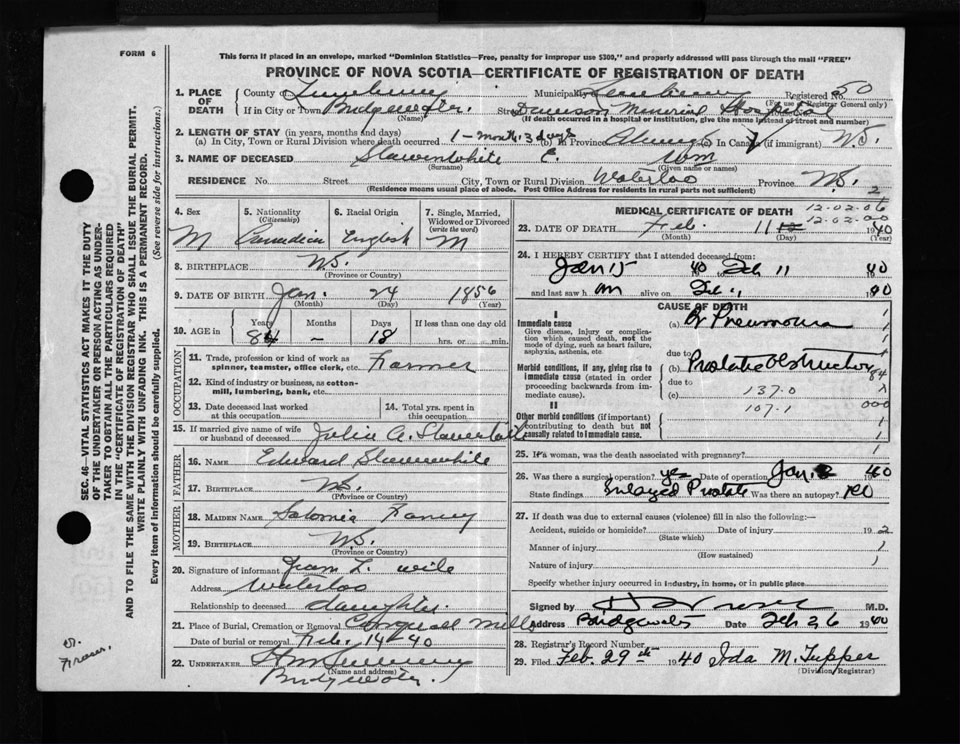 FORM 6
This form if placed in an envelope, marked "Dominion Statistics—Free, penalty for improper use $300," and properly addressed will pass through the mail "FREE"
PROVINCE OF NOVA SCOTIA—CERTIFICATE OF REGISTRATION OF DEATH
1. PLACE OF DEATH County Lunenburg Municipality Lunenburg Registered No. 50
(For use of Registrar General only)
If in City or Town Bridgewater Street Dawson Memorial Hospital
(Name) (If death occurred in a hospital or institution, give the name instead of street and number)
2. LENGTH OF STAY (in years, months and days)
(a) In City, Town or Rural Division where death occurred 1-month 3 days (b) In Province Always (c) In Canada (if immigrant) N.S.
3. NAME OF DECEASED Slawenwhite E. Wm
(Surname) (Given name or names)
RESIDENCE No. Street City, Town or Rural Division Waterloo Province N.S.
(Residence means usual place of abode. Post Office Address for residents in rural parts not sufficient) 2
4. Sex M
5. Nationality (Citizenship) Canadian
6. Racial Origin English
7. Single, Married, Widowed or Divorced (write the word) M
8. BIRTHPLACE N.S.
(Province or Country)
9. DATE OF BIRTH Jan. 24 1856
(Month) (Day) (Year)
10. AGE in Years 84 Months – Days 18 If less than one day old hrs. or min.
OCCUPATION
11. Trade, profession or kind of work as spinner, teamster, office clerk, etc. Farmer
12. Kind of industry or business, as cotton-mill, lumbering, bank, etc.
13. Date deceased last worked at this occupation
14. Total yrs. spent in this occupation
15. If married give name of wife or husband of deceased Julia A. Slauenwhite
FATHER
16. Name Edward Slawenwhite
17. Birthplace N.S.
(Province or Country)
MOTHER
18. MAIDEN NAME Salomia
19. BIRTHPLACE N.S.
(Province or Country)
20. Signature of informant L. Wile
Address Waterloo
Relationship to deceased daughter.
21. Place of Burial, Cremation or Removal Conquerall Mills
Date of burial or removal Feb. 14-40
22. UNDERTAKER
(Name and address)
Bridgewater.
MEDICAL CERTIFICATE OF DEATH 12.02.06
12.02.00
23. DATE OF DEATH Feb. 11 12 1940
(Month) (Day) (Year)
24. I HEREBY CERTIFY that I attended deceased from:
Jan 15 40 to Feb 11 1940
and last saw him alive on Feb 11 1940
CAUSE OF DEATH
I
Immediate cause (a) Br Pneumonia
Give disease, injury or complication which caused death, not the mode of dying, such as heart failure, asphyxia, asthenia, etc.
due to
Morbid conditions, if any, giving rise to immediate cause (stated in order proceeding backwards from immediate cause). (b) Prostatic Obstruction 84
due to
(c) 137.0
II 107.1 000
Other morbid conditions (if important) contributing to death but not causally related to immediate cause.
25. If a woman, was the death associated with pregnancy?
26. Was there a surgical operation? yes Date of operation Jan 1940
State findings Enlarged Prostate Was there an autopsy? no
27. If death was due to external causes (violence) fill in also the following:—
Accident, suicide or homicide? Date of injury 19
(State which)
Manner of injury
(How sustained)
Nature of injury
Specify whether injury occurred in industry, in home, or in public place
Signed by M.D.
Address Bridgewater Date Feb 26 1940
28. Registrar's Record Number
29. Filed Feb. 29th 1940 Ida M. Tupper
(Division Registrar)
SEC. 46—VITAL STATISTICS ACT MAKES IT THE DUTY OF THE UNDERTAKER OR PERSON ACTING AS UNDERTAKER TO OBTAIN ALL THE PARTICULARS REQUIRED IN THE "CERTIFICATE OF REGISTRATION OF DEATH"
AND TO FILE THE SAME WITH THE DIVISION REGISTRAR WHO SHALL ISSUE THE BURIAL PERMIT.
WRITE PLAINLY WITH UNFADING INK. THIS IS A PERMANENT RECORD.
Every item of information should be carefully supplied. (See reverse side for instructions.)
D. Fraser.